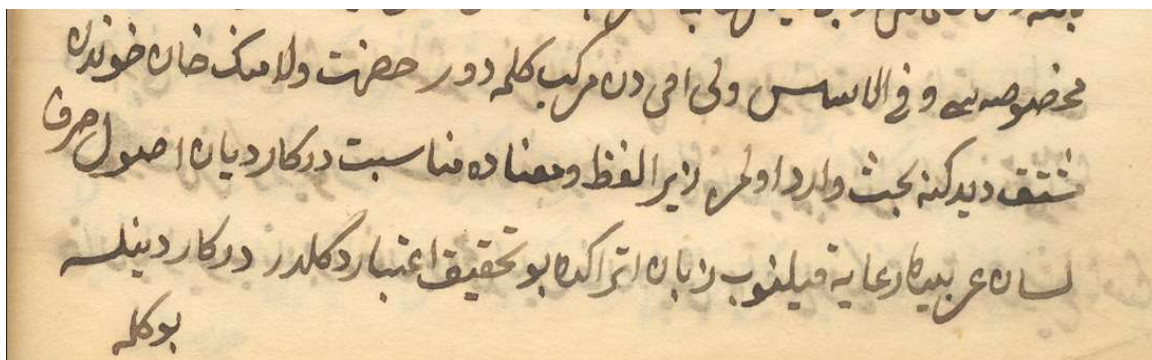 مخصوصه سے و فی الاساس ولی امی دن مرکب کلمه دور حضرت ولامنک خان خوندن
مشتق دیدکنه بحث وارد اولمز زیرا لفظ ومعناده مناسبت درکار دیان اصول صرف
لسان عربیده رعایه قیلنوب زبان اتراکده بو تحقیق اعتبار دکلدر درکار دینلسه
بو کلمه